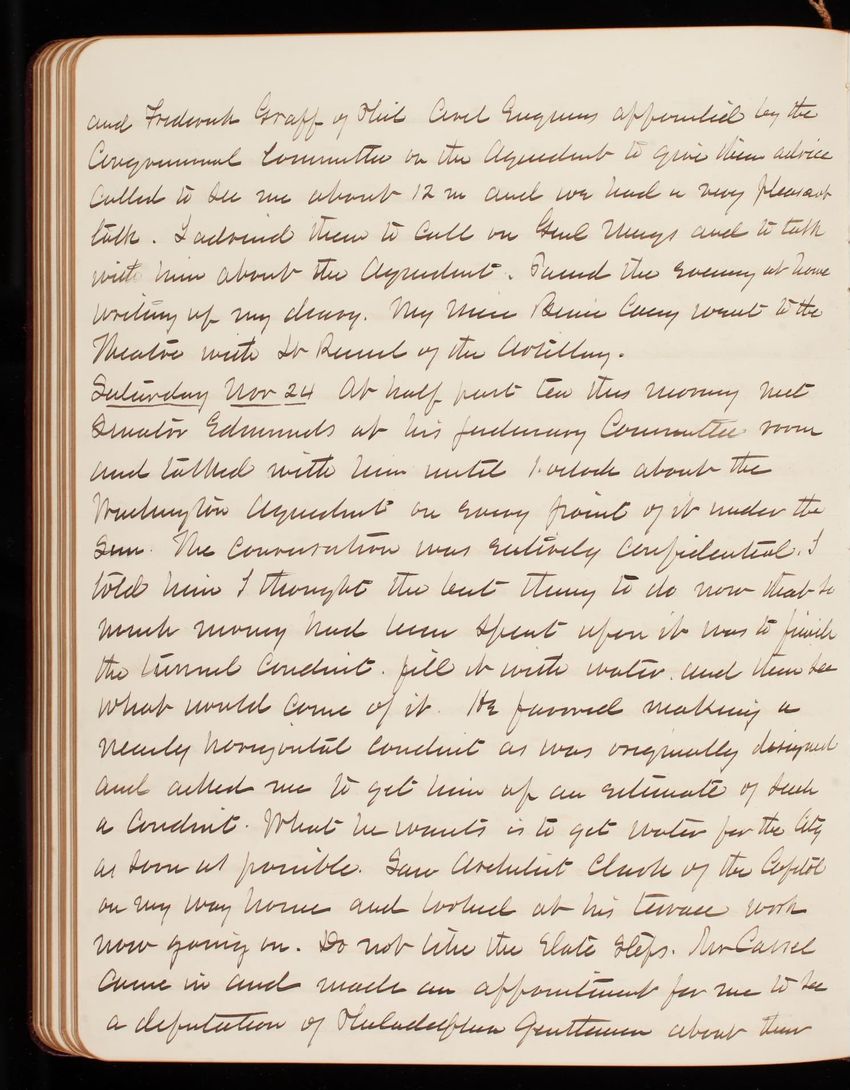 and Frederick Graff of Phil Civil Engineers appointed by the
Congressional Committee on the Aqueduct to give them advice
called to see me about 12 m and we had a very pleasant
talk. I advised them to call on Genl Meigs and to talk
with him about the Aqueduct. Passed the evening at home
writing up my diary. My niece Casey went to the
Theatre with Lt of the Artillery.
Saturday Nov 24 At half past ten this morning met
Senator Edmunds at his Judiciary Committee room
and talked with him until 1 oclock about the
Washington Aqueduct on every point of it under the
Sun. The conversation was entirely confidential. I
told him I thought the best thing to do now that so
much money had been spent upon it was to finish
the tunnel conduit. fill it with water. and then see
what would come of it. He favored making a
nearly horizontal conduit as was originally designed
and asked me to get him up an estimate of such
a conduit. What he wants is to get water for the City
as soon as possible. Saw Architect Clark of the Capitol
on my way home and looked at his terrace work
now going on. Do not like the slate steps. Mr
came in and made an appointment for me to see
a deputation of Philadelphia Gentlemen about their